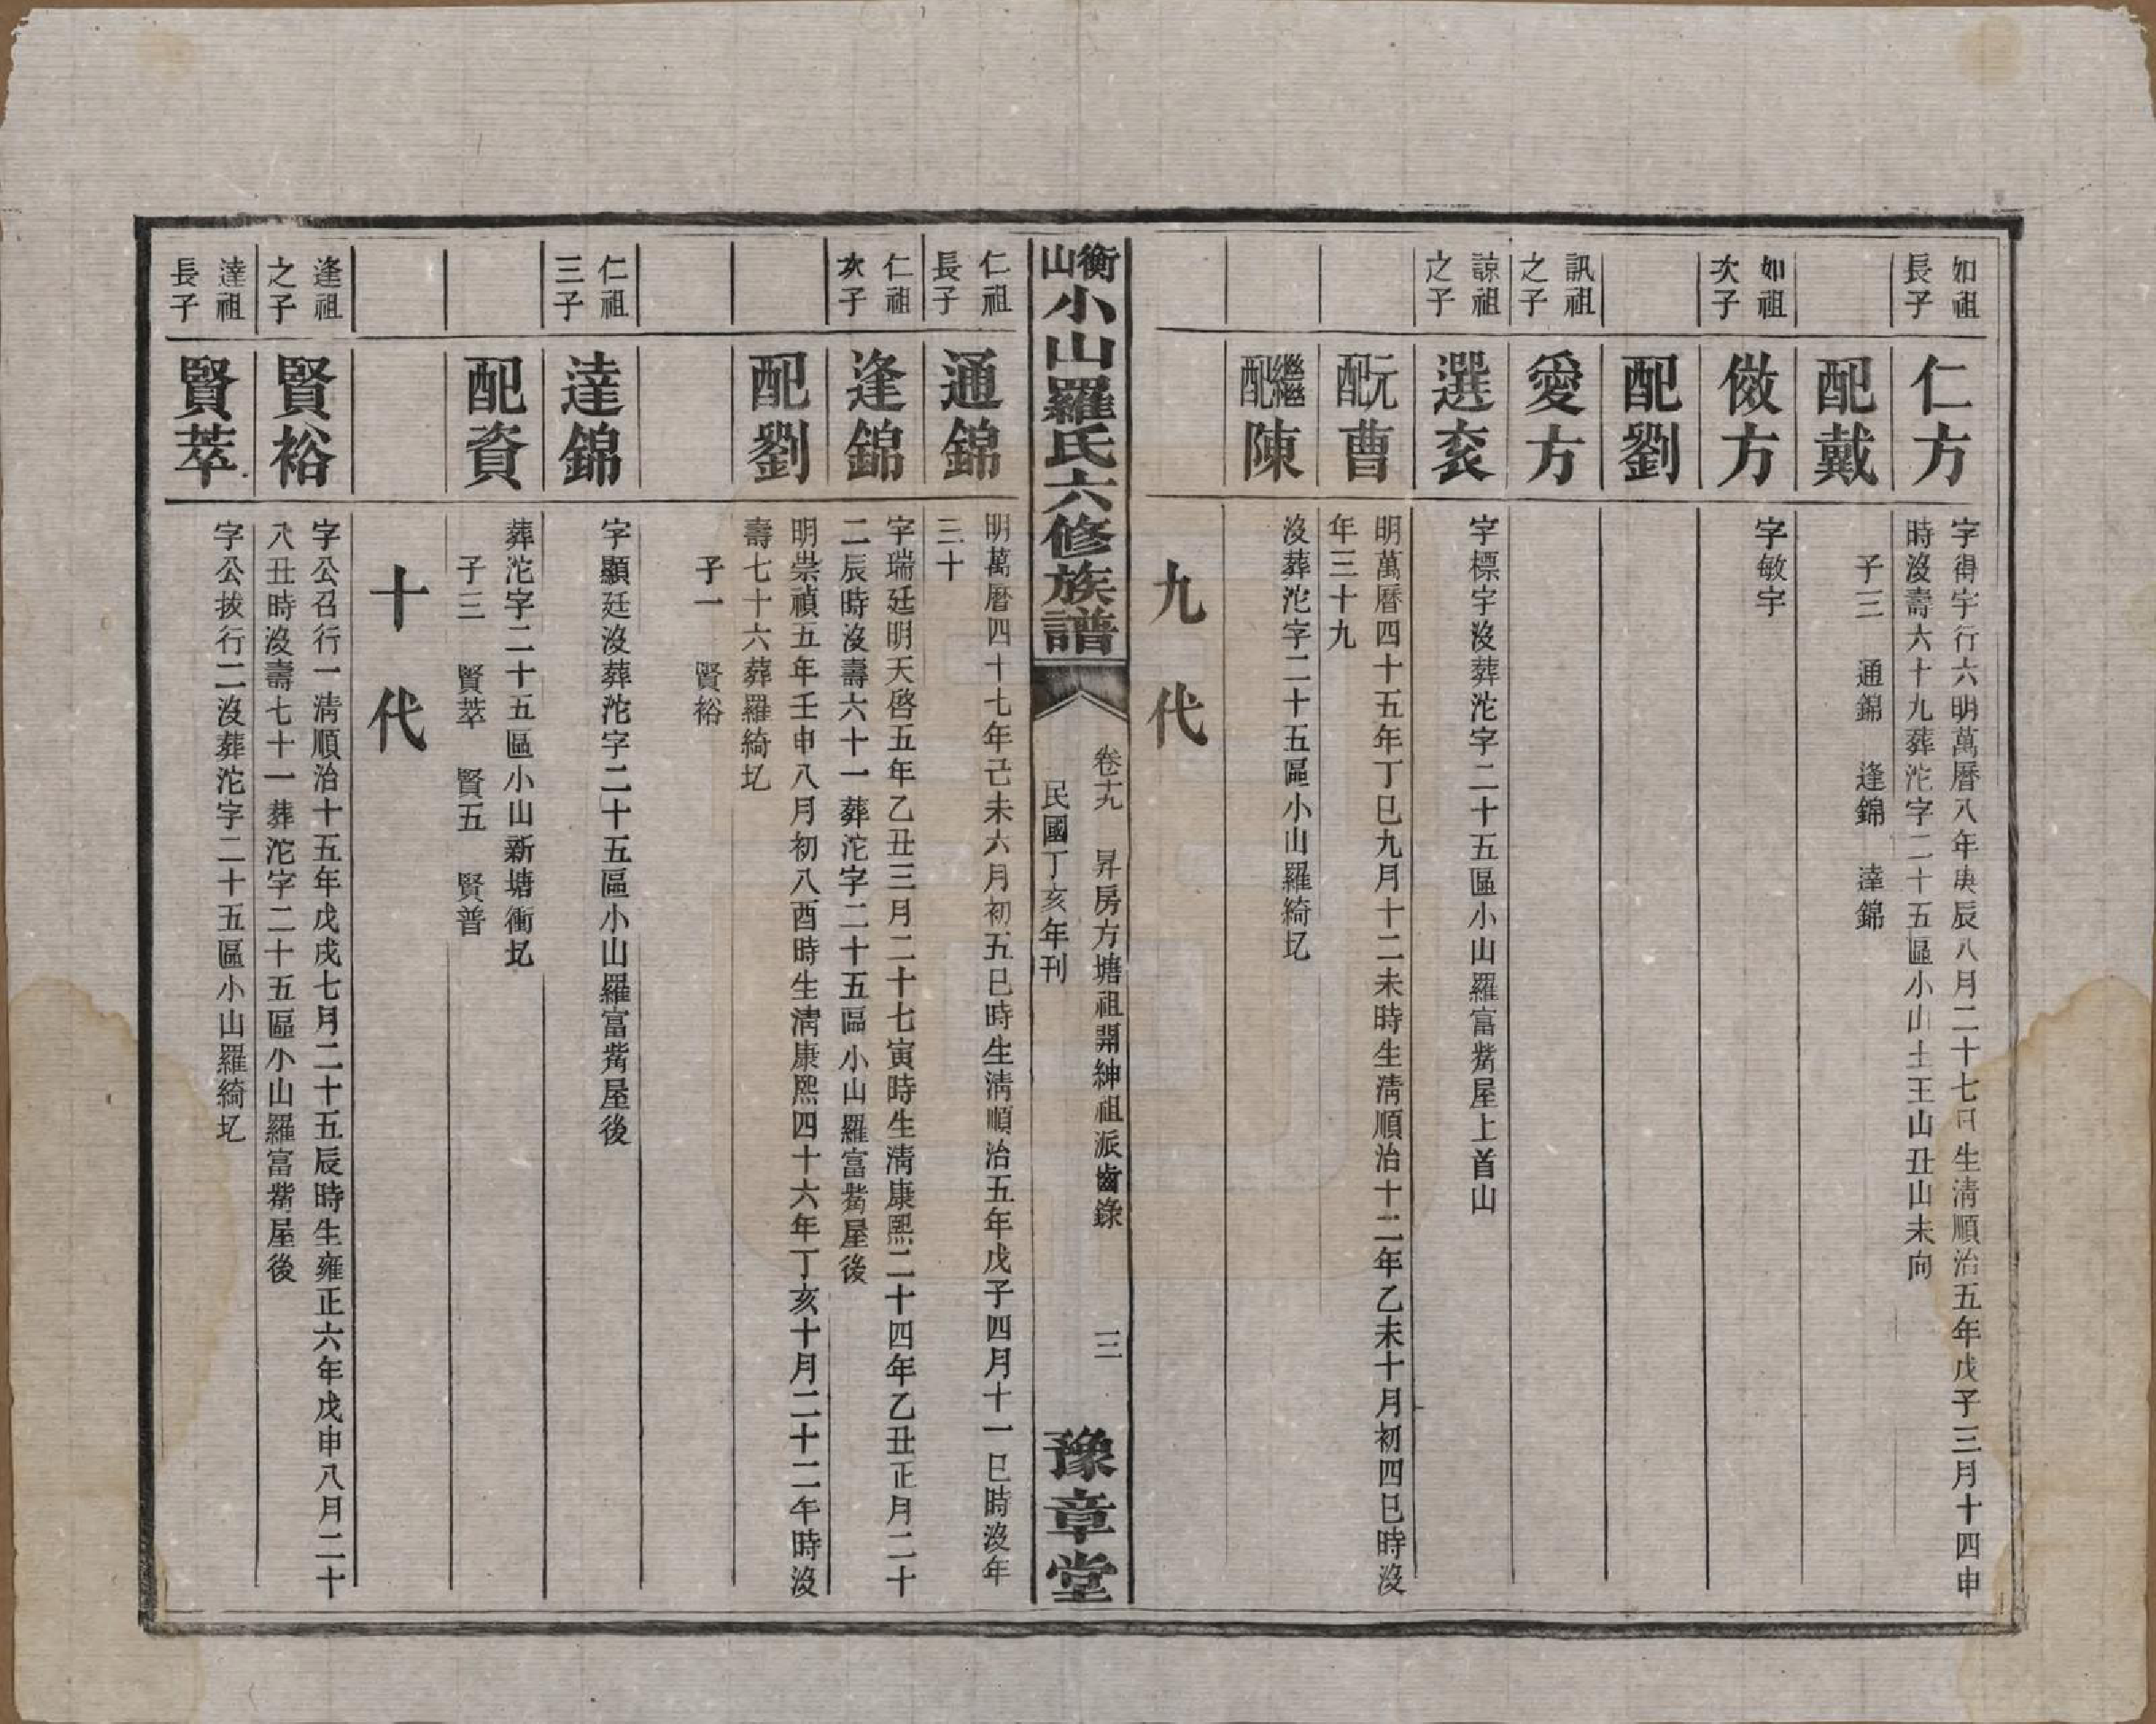 如祖
長子
仁方
字得宇行六明萬曆八年庚辰八月二十七日生淸順治五年戊子三月十四申
時沒壽六十九葬沱字二十五區小山土王山丑山未向
配戴
子三　通錦　逢錦　達錦
如祖
次子
倣方
字敏宇
配劉
訊祖
之子
愛方
諒祖
之子
選衮
字標宇沒葬沱字二十五區小山羅富觜屋上首山
元配曹
明萬曆四十五年丁巳九月十二未時生淸順治十二年乙未十月初四巳時沒
年三十九
繼配陳
沒葬沱字二十五區小山羅綺圠
九代
衡山小山羅氏六修族譜
卷十九　昇房方塘祖開紳祖派齒錄　三
民國丁亥年刊
豫章堂
仁祖
長子
通錦
明萬曆四十七年己未六月初五巳時生淸順治五年戊子四月十一巳時沒年
三十
仁祖
次子
逢錦
字瑞廷明天啓五年乙丑三月二十七寅時生淸康熙二十四年乙丑正月二十
二辰時沒壽六十一葬沱字二十五區小山羅富觜屋後
配劉
明崇禎五年壬申八月初八酉時生淸康熙四十六年丁亥十月二十二午時沒
壽七十六葬羅綺圠
子一　賢裕
仁祖
三子
達錦
字顯廷沒葬沱字二十五區小山羅富觜屋後
配資
葬沱字二十五區小山新塘衝圠
子三　賢萃　賢五　賢普
十代
逢祖
之子
賢裕
字公召行一淸順治十五年戊戌七月二十五辰時生雍正六年戊申八月二十
八丑時沒壽七十一葬沱字二十五區小山羅富觜屋後
達祖
長子
賢萃
字公拔行二沒葬沱字二十五區小山羅綺圠